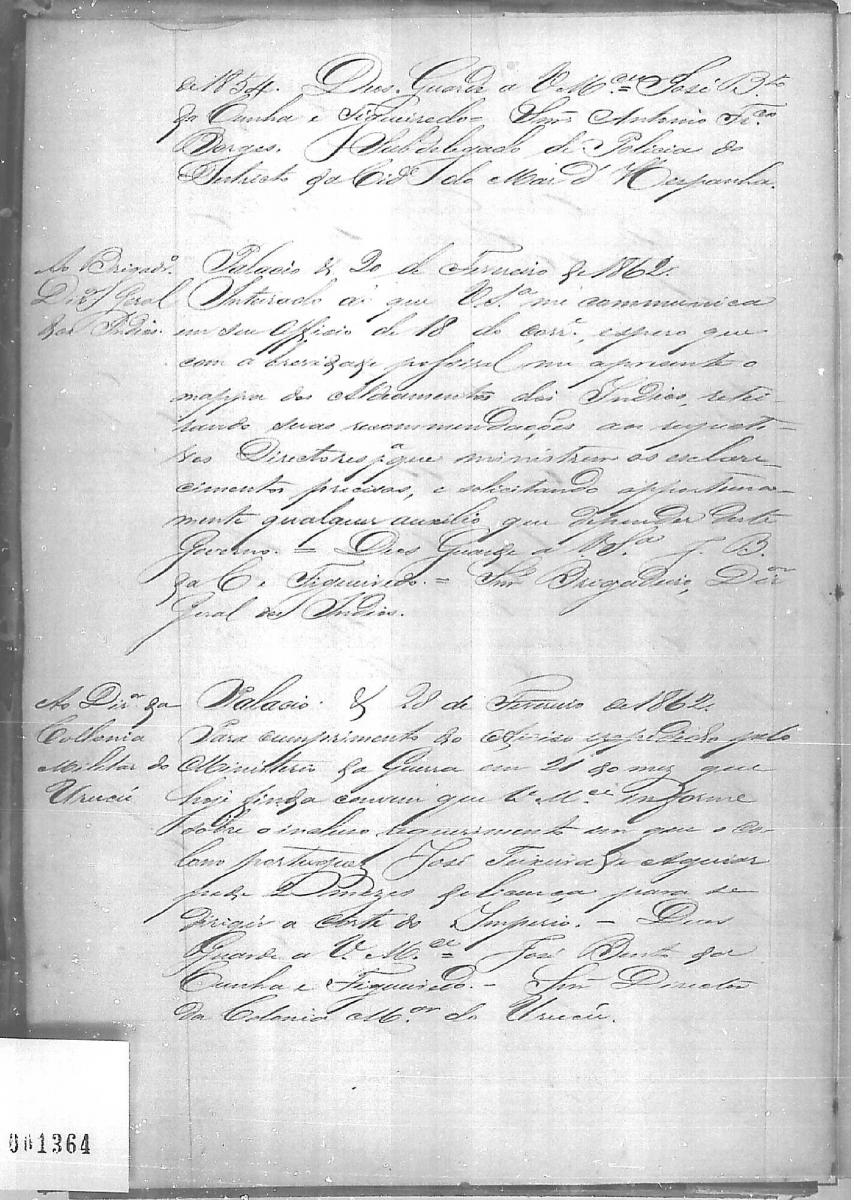 de 1854. Deus Guarde a V. M.ce = José B.to
da Cunha e Figueiredo = Snr. Antonio Fr.co
Borges. Subdelegado de Policia do
Districto da Cid.e do Mar d'Hespanha.
Ao Brigad.ro
Dir.or Geral
dos Indios.
Palacio & 20 de Fevereiro de 1862.
Inteirado do que V. S.a me communica
em seu officio de 18 do corr.e, espero que
com a brevidade possivel me apresente o
mappa dos Aldeamentos dos Indios, reite-
rando suas recommendações aos respecti-
vos Directores p.a que ministrem os esclare-
cimentos precisos, e solicitando opportuna-
mente qualquer auxilio que depender deste
Governo. = Deos Guarde a V. S.a J. B.
da C. e Figueiredo. = Snr. Brigadeiro, Dir.or
Geral dos Indios.
Ao Dir.or da
Collonia
Militar do
Urucú
Palacio & 28 de Fevereiro de 1862.
Para cumprimento do Aviso expedido pelo
Ministerio da Guerra em 21 do mez que
hoje finda convem que V. M.ce informe
sobre o incluso requerimento em que o co-
lono portuguez José Teixeira de Aguiar
pede 2 mezes de licença para se
dirigir a Corte do Imperio. = Deus
Guarde a V. M.ce = José Bento da
Cunha e Figueiredo. = Snr. Director
da Colonia M.ar do Urucú.
001364